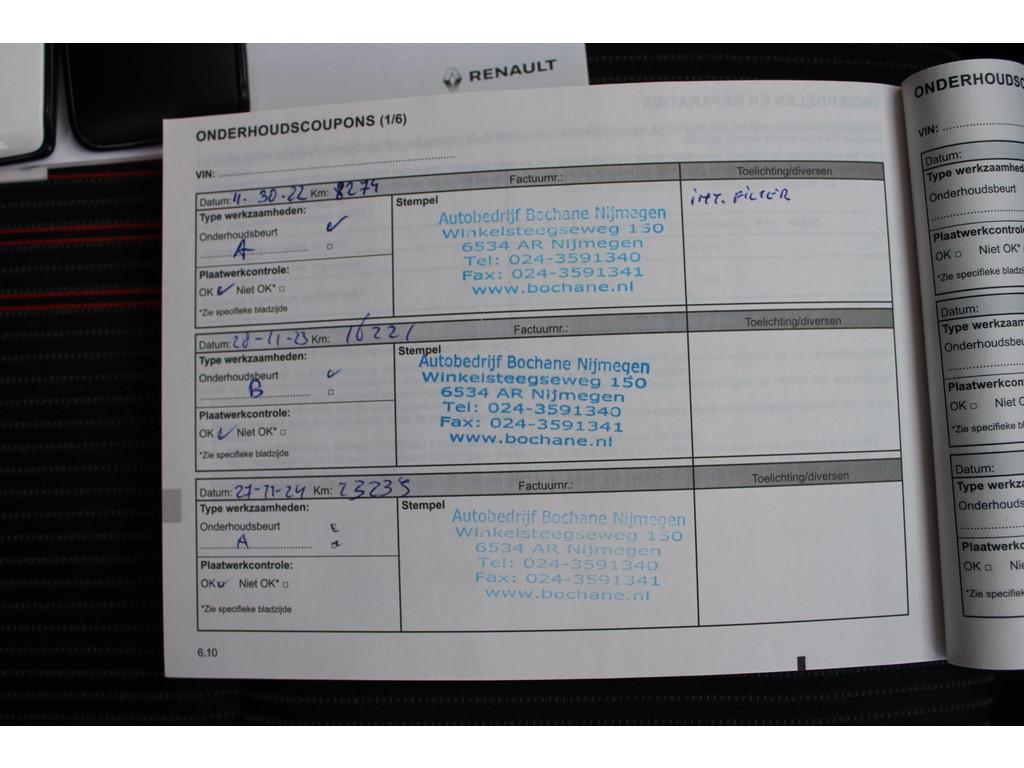 RENAULT
ONDERHOUDSCOUPONS (1/6)
VIN:
Datum: 4-30-22 Km: 8274 Factuurnr.: Toelichting/diversen
Type werkzaamheden: Stempel INT. FILTER
Onderhoudsbeurt
A
Plaatwerkcontrole:
OK Niet OK*
*Zie specifieke bladzijde
Autobedrijf Bochane Nijmegen
Winkelsteegseweg 150
6534 AR Nijmegen
Tel: 024-3591340
Fax: 024-3591341
www.bochane.nl
Datum: 28-11-23 Km: 16221 Factuurnr.: Toelichting/diversen
Type werkzaamheden: Stempel
Onderhoudsbeurt
B
Plaatwerkcontrole:
OK Niet OK*
*Zie specifieke bladzijde
Autobedrijf Bochane Nijmegen
Winkelsteegseweg 150
6534 AR Nijmegen
Tel: 024-3591340
Fax: 024-3591341
www.bochane.nl
Datum: 27-12-24 Km: 23235 Factuurnr.: Toelichting/diversen
Type werkzaamheden: Stempel
Onderhoudsbeurt
A
Plaatwerkcontrole:
OK Niet OK*
*Zie specifieke bladzijde
Autobedrijf Bochane Nijmegen
Winkelsteegseweg 150
6534 AR Nijmegen
Tel: 024-3591340
Fax: 024-3591341
www.bochane.nl
6.10
VIN:
Datum:
Type
Onderhoudsbeurt
OK Niet OK*
*Zie specifieke
Datum:
Type
OK Niet
*Zie specifieke
Datum:
Type
OK
*Zie